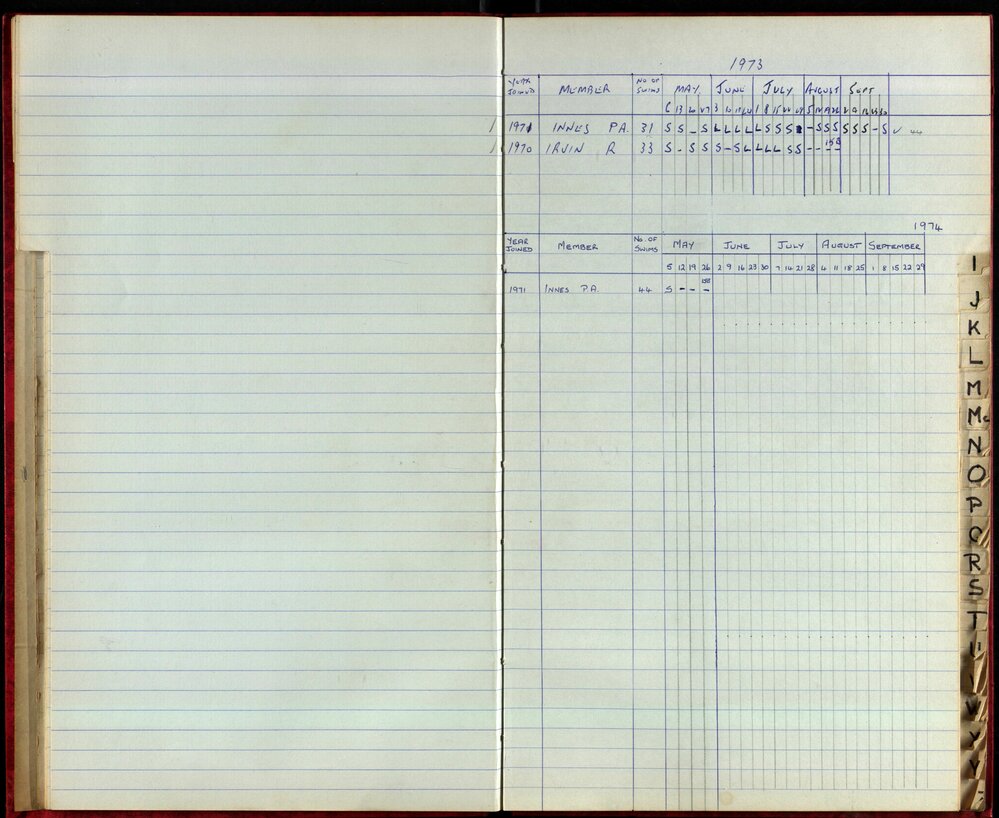 1973
YEAR JOINED MEMBER NO OF SWIMS MAY JUNE JULY AUGUST SEPT
6 13 20 27 3 10 17 24 1 8 15 22 29 5 12 19 26 2 9 16 23 30
1 1971 INNES P.A. 31 S S - S L L L L L S S S - S S S S S S - S ✓ 44
1 1970 IRVIN R 33 S - S S S - S L L L L S S - - - -
1974
YEAR JOINED MEMBER NO. OF SWIMS MAY JUNE JULY AUGUST SEPTEMBER
5 12 19 26 2 9 16 23 30 7 14 21 28 4 11 18 25 1 8 15 22 29
1971 INNES P.A. 44 S - - -
I
J
K
L
M
Mc
N
O
P
Q
R
S
T
U
V
W